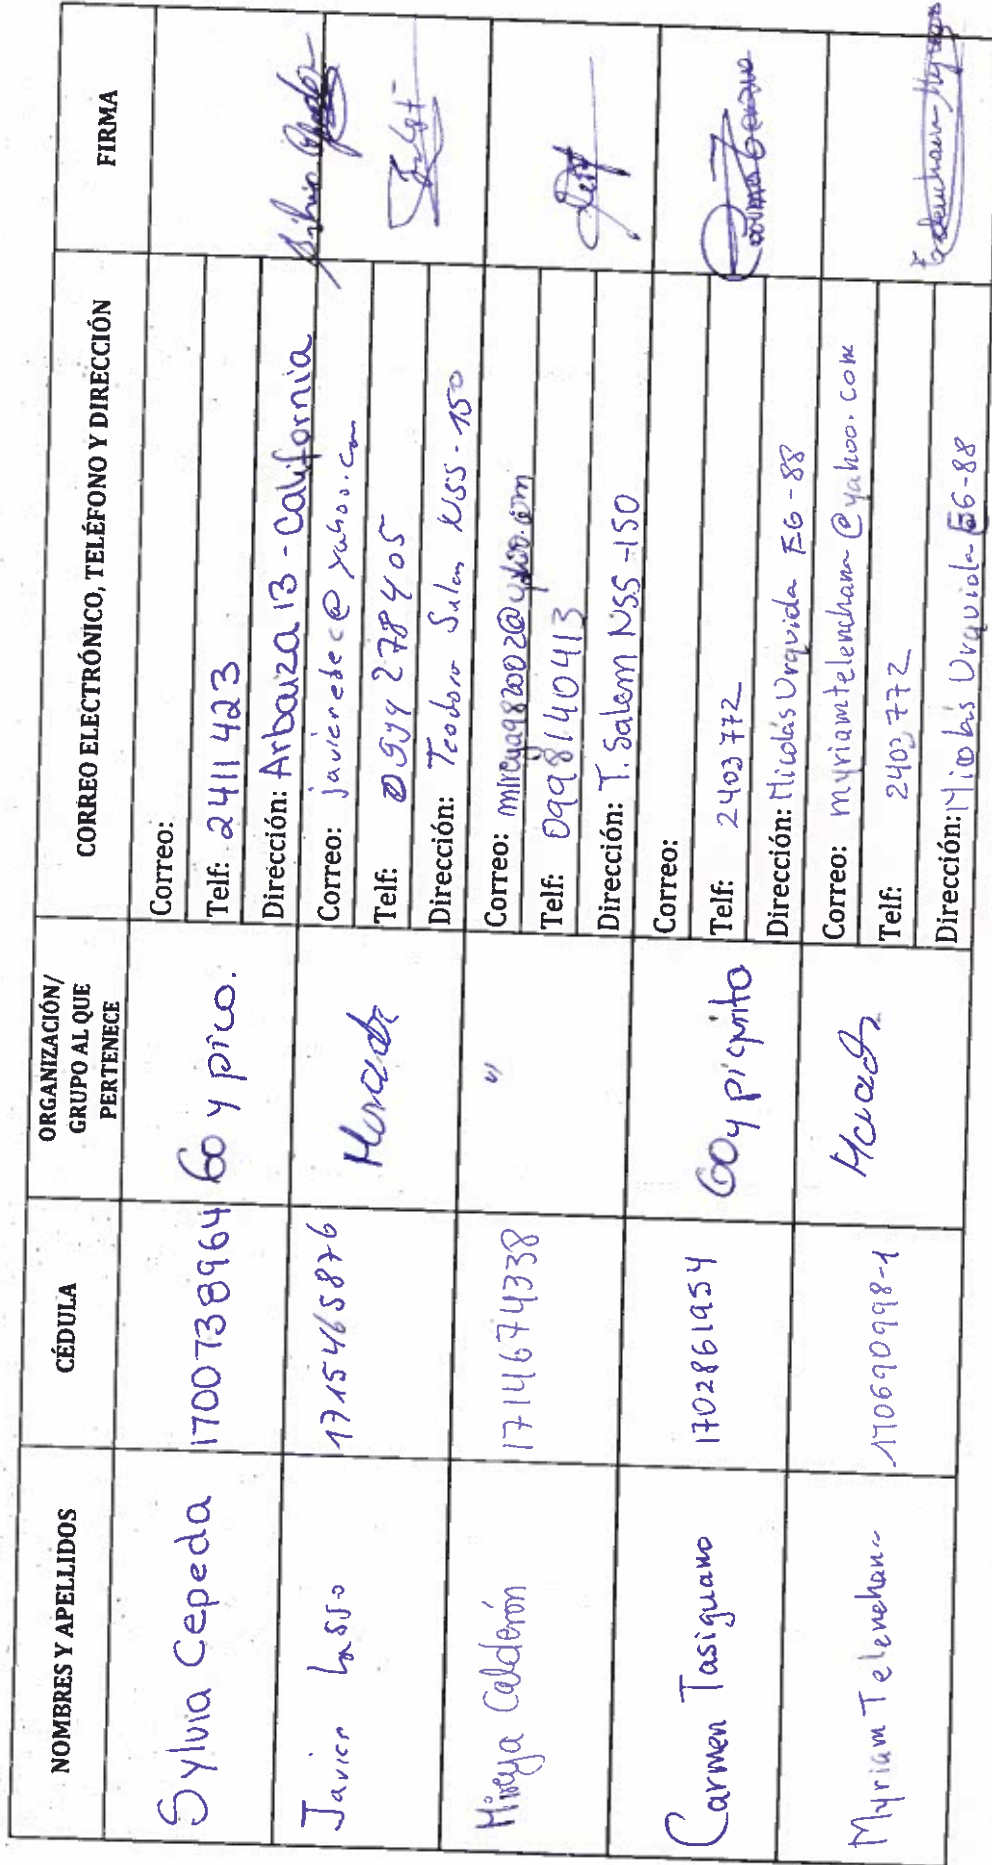 NOMBRES Y APELLIDOS
CÉDULA
ORGANIZACIÓN/
GRUPO AL QUE
PERTENECE
CORREO ELECTRÓNICO, TELÉFONO Y DIRECCIÓN
FIRMA
Sylvia Cepeda
1700738964
60 y pico.
Correo:
Telf: 2411 423
Dirección: Arbaiza 13 - California
Javier Lasso
1715465876
Morador
Correo:
Telf:
Dirección: Teodoro Salem N55-150
Mireya Calderón
1714674338
"
Correo:
Telf: 0998140413
Dirección: T. Salem N55-150
Carmen Tasiguano
1702861954
60 y piquito
Correo:
Telf: 2403772
Dirección: Nicolás Urquida E6-88
Myriam Telenchana
170690998-1
Correo: myriamtelenchana@yahoo.com
Telf: 2403772
Dirección: Nicolás Urquida E6-88